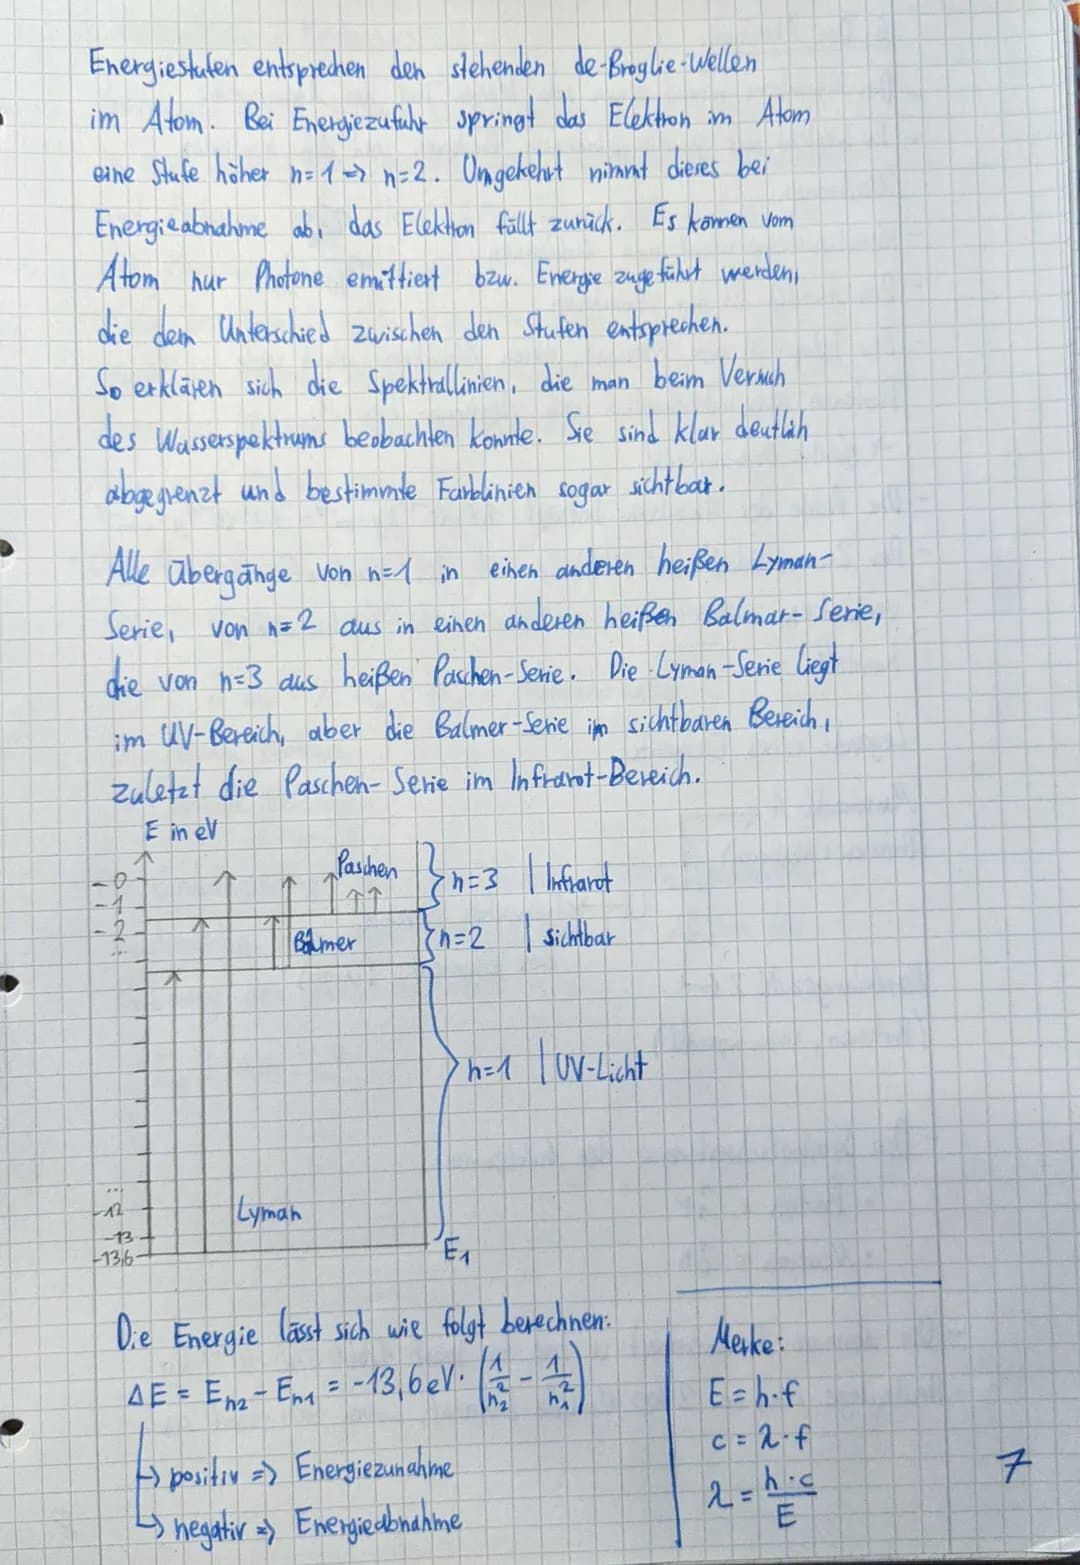 Energiestufen entsprechen den stehenden de-Broglie-Wellen
im Atom. Bei Energiezufuhr springt das Elektron im Atom
eine Stufe höher n=1 → n=2. Umgekehrt nimmt dieses bei
Energieabnahme ab, das Elektron fällt zurück. Es können vom
Atom nur Photone emittiert bzw. Energie zugeführt werden,
die dem Unterschied zwischen den Stufen entsprechen.
So erklären sich die Spektrallinien, die man beim Versuch
des Wasserspektrums beobachten konnte. Sie sind klar deutlich
abgegrenzt und bestimmte Farblinien sogar sichtbar.
Alle Übergänge von n=1 in einen anderen heißen Lyman-
Serie, von n=2 aus in einen anderen heißen Balmar-Serie,
die von n=3 aus heißen Paschen-Serie. Die Lyman-Serie liegt
im UV-Bereich, aber die Balmer-Serie im sichtbaren Bereich,
zuletzt die Paschen-Serie im Infrarot-Bereich.
E in eV
Paschen
-0
n=3 | Infrarot
-1
-2
Balmer
n=2 | sichtbar
...
n=1 | UV-Licht
...
-12
Lyman
-13
-13,6
E₁
Die Energie lässt sich wie folgt berechnen:
ΔE = En₂ - En₁ = -13,6eV · (1/n₂² - 1/n₁²)
↳ positiv ⇒ Energiezunahme
↳ negativ ⇒ Energieabnahme
Merke:
E = h·f
c = λ·f
λ = h·c/E
7